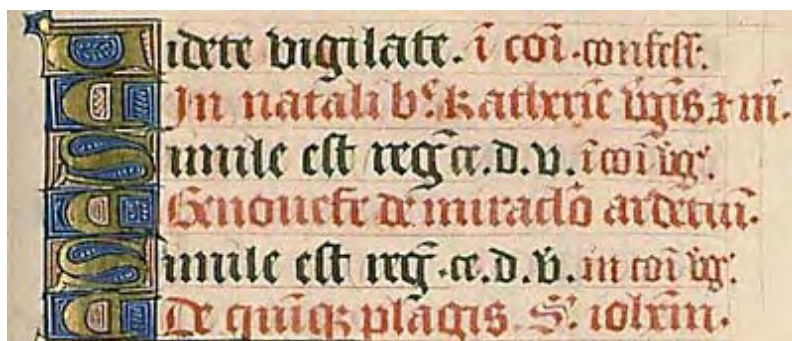 Videte vigilate. ī coī. confess.
In natali bᵉ katherīe v̄gīs ⁊ m̄.
Simile est regᷓ ce. d. v. ī coī v̄g.
Genouefe de miraclo ardetiū.
Simile est regᷓ. ce. d. v. in coī v̄g.
De quīqꝫ plagis. S. iohēm.